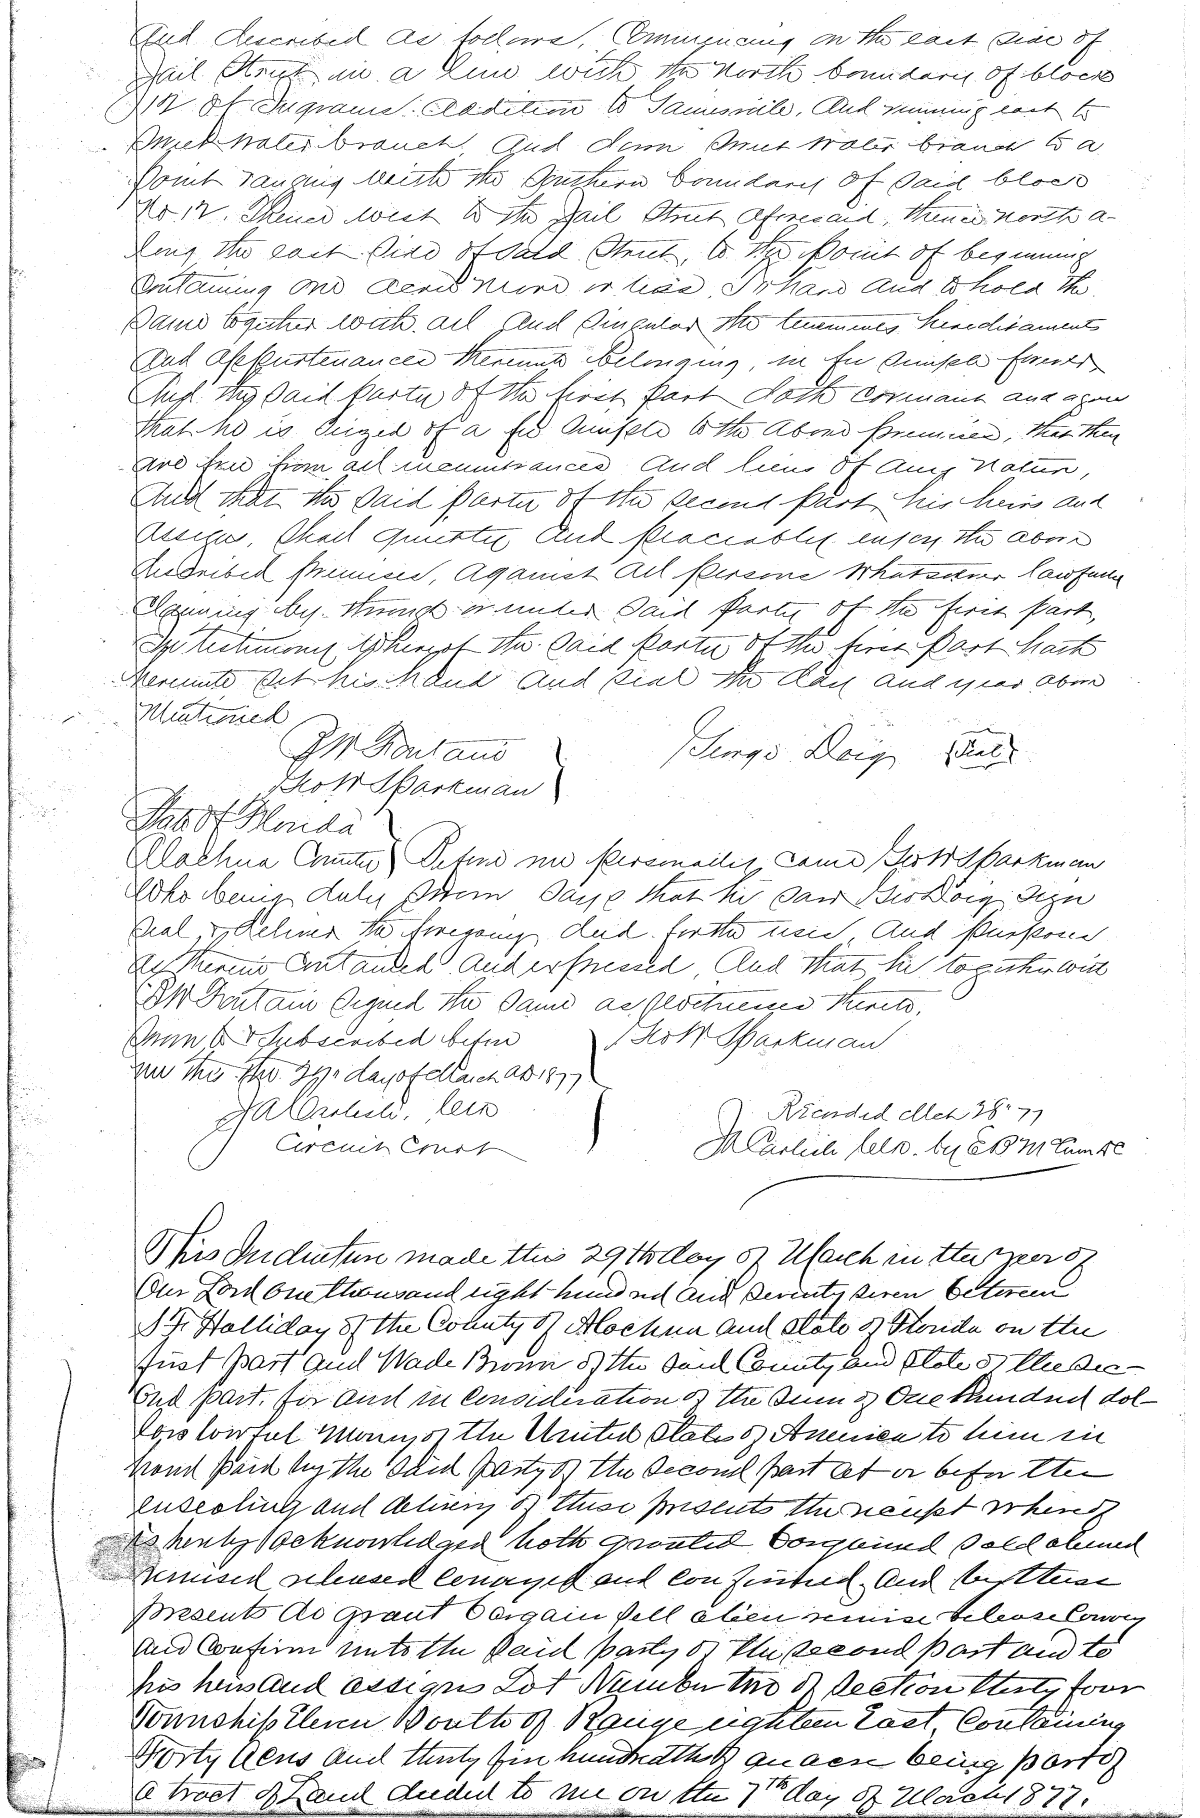 And described as follows, Commencing on the east side of
Jail Street in a line with the North boundary of block
No 12 of Ingrams Addition to Gainesville, And running east to
Sweet Water branch, And down Sweet Water branch to a
Point ranging with the Southern boundary of said block
No. 12. Thence west to the Jail Street aforesaid, thence north a-
long the east side of said Street, to the point of beginning
Containing one acre more or less, To have and to hold the
Same together with all and Singular the tenements hereditaments
and appurtenances thereunto belonging, in fee simple forever
And the said party of the first part doth covenant and agree
that he is seized of a fee simple to the above premises, that they
are free from all incumbrances and liens of any nature,
And that the said party of the second part, his heirs and
assigns, shall quietly and peaceably enjoy the above
described premises, against all persons whatsoever lawfully
claiming by, through or under said party of the first part,
In testimony whereof the said party of the first part hath
hereunto set his hand and seal the day and year above
Mentioned
J W Fontane } George Doig (Seal)
Geo W Sparkman }
State of Florida
Alachua County } Before me personally came Geo W Sparkman
Who being duly sworn says that he saw Geo Doig sign
seal & deliver the foregoing deed for the uses and purposes
as therein Contained and expressed, And that he together with
J W Fontain signed the same as Witnesses thereto,
Sworn to & Subscribed before } Geo W Sparkman
me this the day of March AD 1877
J A Carlisle, Clerk
Circuit Court
Recorded Mch 28" 77
J A Carlisle Clk. by
This Indenture made this 29th day of March in the year of
Our Lord one thousand eight hundred and seventy seven between
S. F. Halliday of the County of Alachua and State of Florida on the
first part and Wade Brown of the said County and State of the sec-
ond part. for and in consideration of the sum of One Hundred dol-
lars lawful money of the United States of America to him in
hand paid by the said party of the second part at or before the
ensealing and delivery of these presents the receipt whereof
is hereby acknowledged hath granted bargained sold aliened
remised released conveyed and confirmed, and by these
presents do grant bargain sell alien remise release Convey
and Confirm unto the said party of the second part and to
his heirs and assigns Lot Number two of Section thirty four
Township Eleven South of Range eighteen East, Containing
Forty acres and thirty five hundredths of an acre being part of
a tract of Land deeded to me on the 7th day of March 1877.